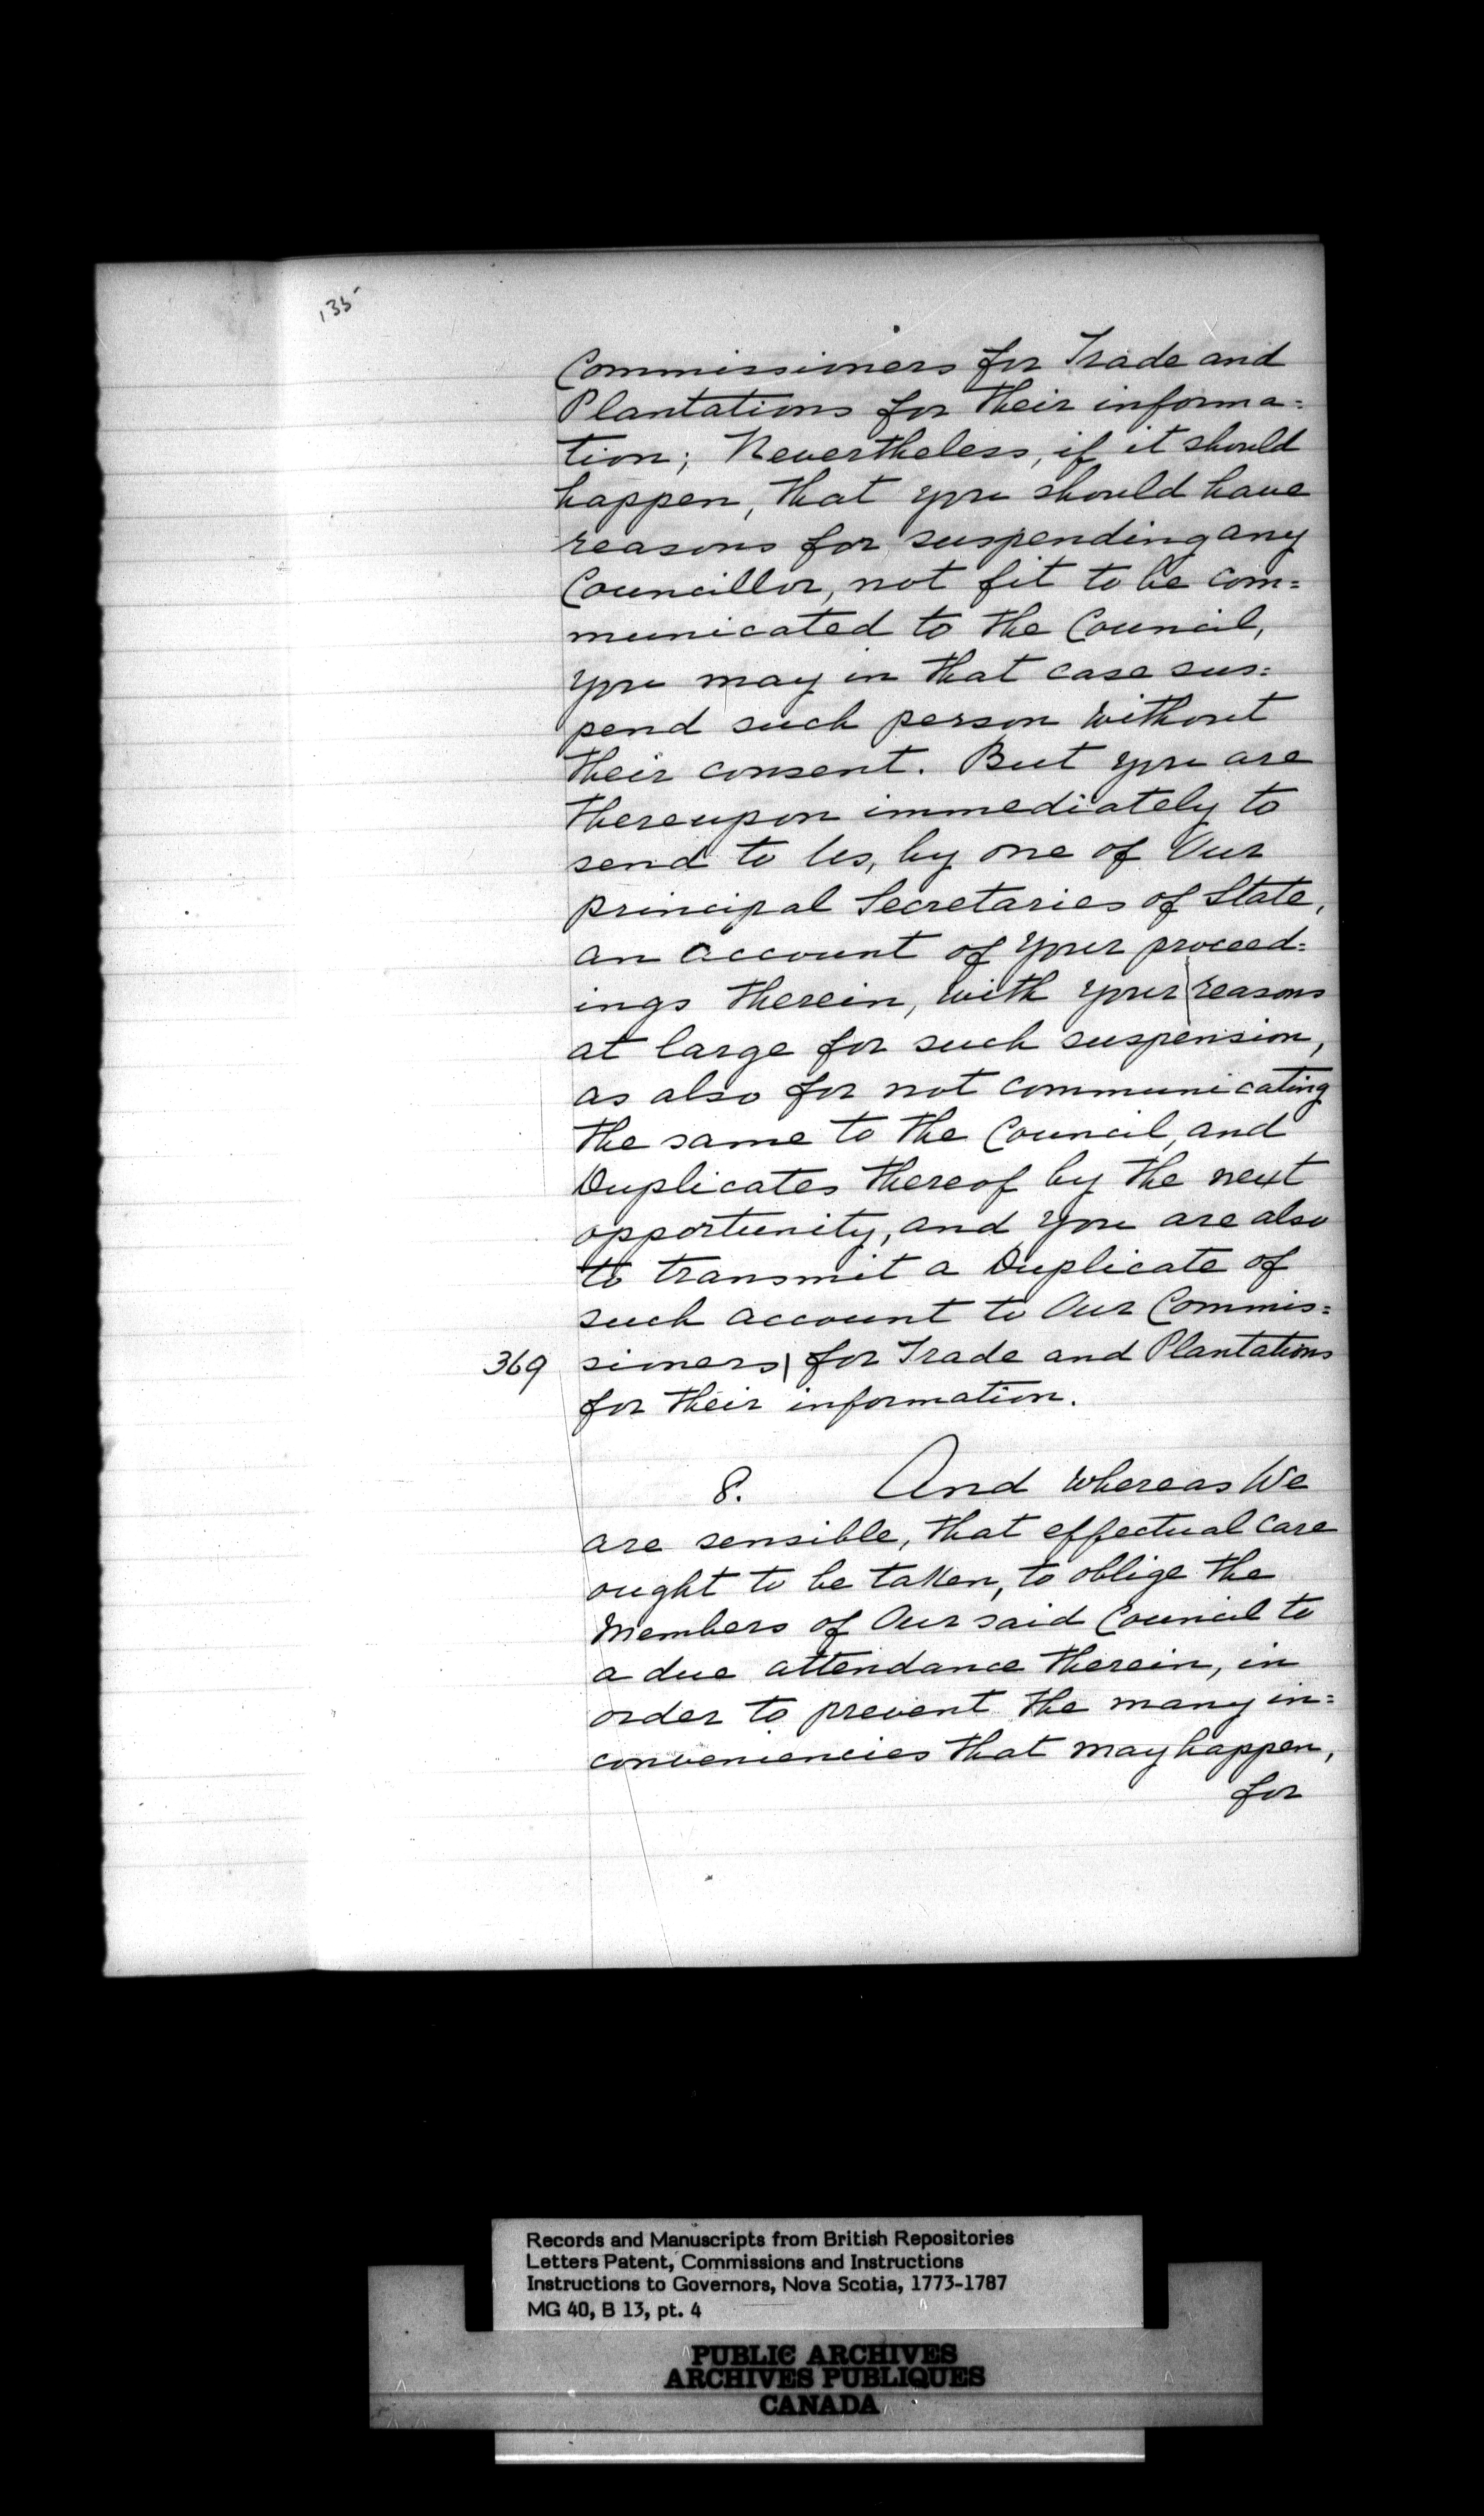 135
Commissioners for Trade and
Plantations for their informa=
tion; Nevertheless, if it should
happen, that you should have
reasons for suspending any
Councillor, not fit to be com=
municated to the Council,
you may in that case sus=
pend such person without
their consent. But you are
thereupon immediately to
send to Us, by one of Our
principal Secretaries of State,
an account of your proceed=
ings therein, with your | reasons
at large for such suspension,
as also for not communicating
the same to the Council, and
Duplicates thereof by the next
opportunity, and you are also
to transmit a Duplicate of
such account to Our Commis=
369 sioners | for Trade and Plantations
for their information.
8. And whereas We
are sensible, that effectual care
ought to be taken, to oblige the
Members of Our said Council to
a due attendance therein, in
order to prevent the many in=
conveniencies that may happen,
for
Records and Manuscripts from British Repositories
Letters Patent, Commissions and Instructions
Instructions to Governors, Nova Scotia, 1773-1787
MG 40, B 13, pt. 4
PUBLIC ARCHIVES
ARCHIVES PUBLIQUES
CANADA